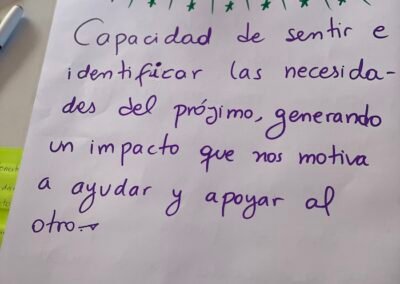 Capacidad de sentir e
identificar las necesida-
des del prójimo, generando
un impacto que nos motiva
a ayudar y apoyar al
otro.